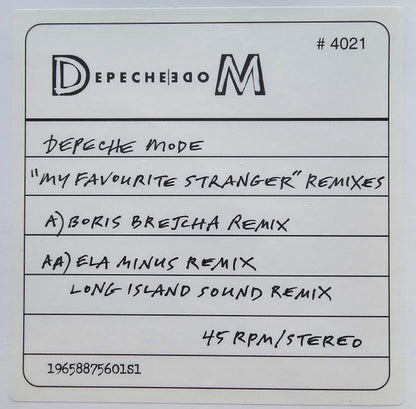 # 4021
DEPECHE MODE
DEPECHE MODE
"MY FAVOURITE STRANGER" REMIXES
A) BORIS BREJCHA REMIX
AA) ELA MINUS REMIX
LONG ISLAND SOUND REMIX
45 RPM/STEREO
19658875601S1